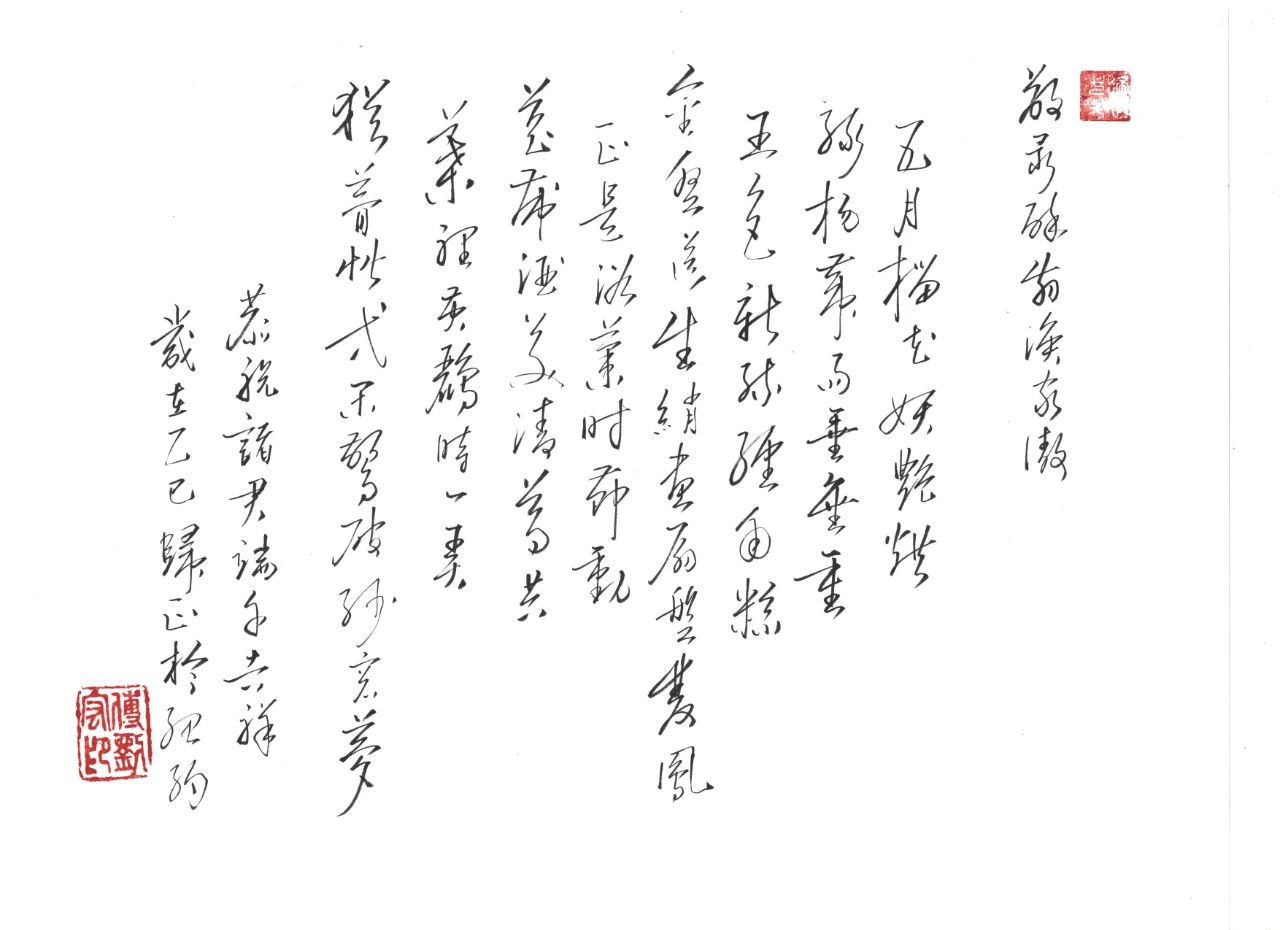 敬录醉翁漁家傲
五月榴花妖艷烘
綠楊帶雨垂垂重
五色新絲纏角粽
金盤送生綃畫扇盤雙鳳
正是浴蘭时節動
菖蒲酒美清尊共
葉裡黃鸝時一弄
猶瞢忪等闲驚破紗窗夢
恭祝諸君端午吉祥
歲在乙巳歸正於紐約
傅劉宏印